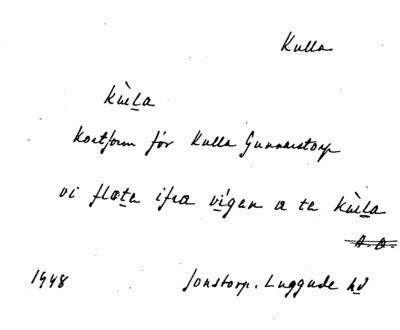 Kulla
kùlla
kortform för Kulla Gunnarstorp
vi flæta ifra vígan a ta kùlla
A.O.
1948 Jonstorp. Luggude hd